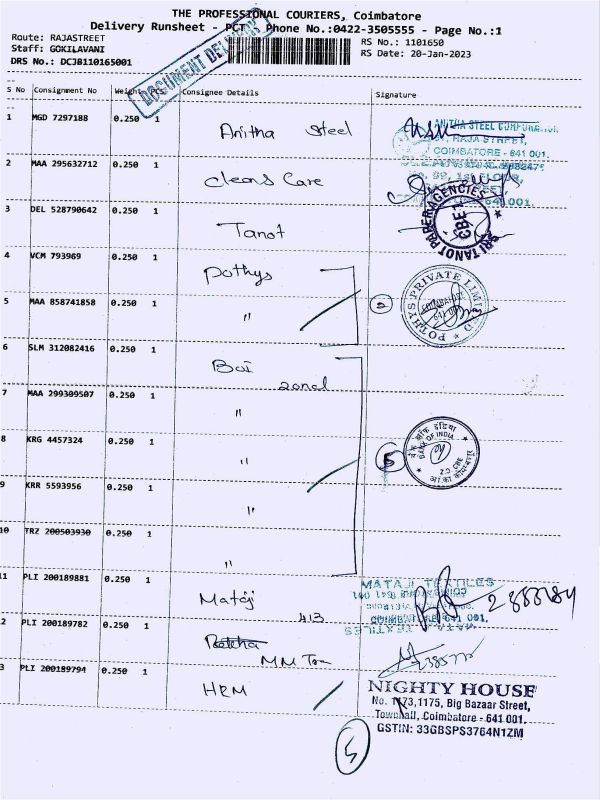 THE PROFESSIONAL COURIERS, Coimbatore
Delivery Runsheet - PCT Phone No.:0422-3505555 - Page No.:1
DOCUMENT DELIVERY
Route: RAJASTREET
RS No.: 1101650
Staff: GOKILAVANI
RS Date: 20-Jan-2023
DRS No.: DCJB110165001
S No Consignment No Weight PCS Consignee Details Signature
1 MGD 7297188 0.250 1 Anitha Steel
ANITHA STEEL CORPORATION
RAJA STREET,
COIMBATORE - 641 001.
2 MAA 295632712 0.250 1 Cleans Care
3 DEL 528790642 0.250 1 Tanot
SRI TANOT PAPER AGENCIES
CBE-1
4 VCM 793969 0.250 1 Pothys
5 MAA 858741858 0.250 1 "
2
POTHYS PRIVATE LIMITED
COIMBATORE
641 001
6 SLM 312082416 0.250 1 BOI zonal
7 MAA 299309507 0.250 1 "
8 KRG 4457324 0.250 1 "
5
बैंक ऑफ इंडिया
BANK OF INDIA
Z.O CBE
9 KRR 5593956 0.250 1 "
10 TRZ 200503930 0.250 1 "
11 PLI 200189881 0.250 1 Mataji
MATAJI TEXTILES
COIMBATORE 641 001.
413
12 PLI 200189782 0.250 1
MM Tra
13 PLI 200189794 0.250 1 HRM
NIGHTY HOUSE
No. 1173,1175, Big Bazaar Street,
Townhall, Coimbatore - 641 001.
GSTIN: 33GBSPS3764N1ZM
5